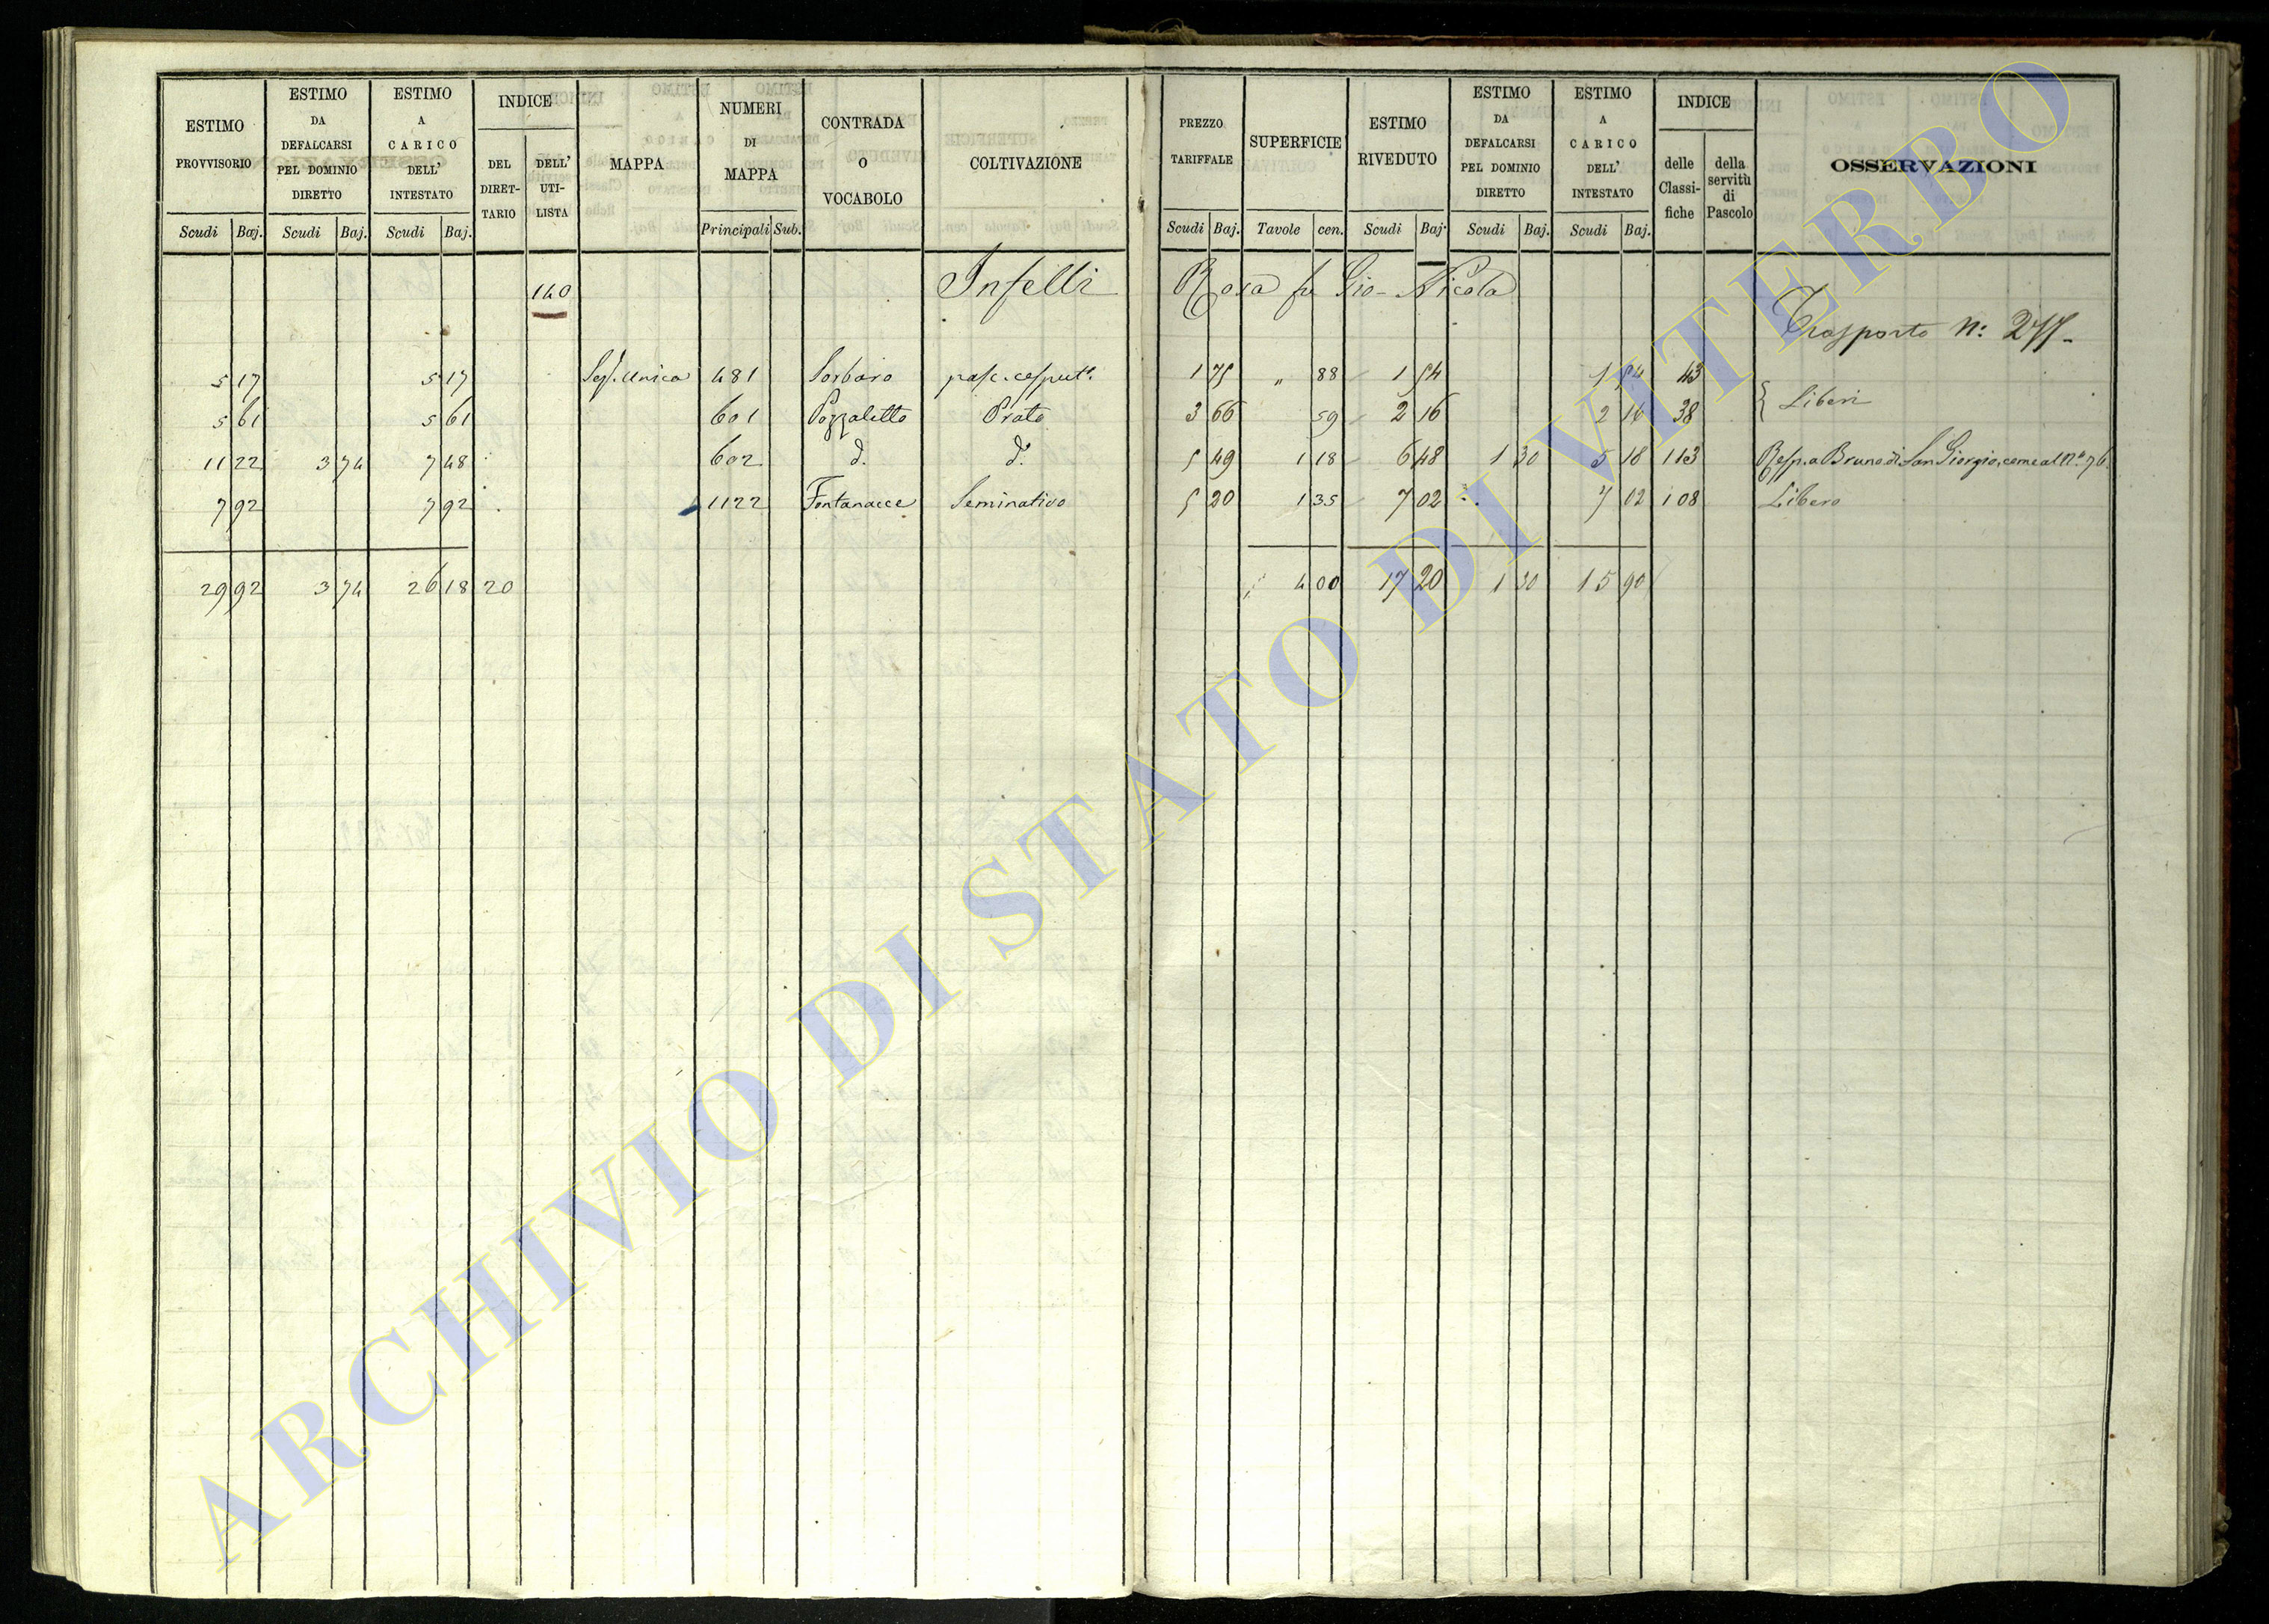 ESTIMO PROVVISORIO
Scudi Baj.
ESTIMO DA DEFALCARSI PEL DOMINIO DIRETTO
Scudi Baj.
ESTIMO A CARICO DELL' INTESTATO
Scudi Baj.
INDICE
DEL DIRET- TARIO
DELL' UTI- LISTA
MAPPA
NUMERI DI MAPPA
Principali Sub.
CONTRADA O VOCABOLO
COLTIVAZIONE
PREZZO TARIFFALE
Scudi Baj.
SUPERFICIE
Tavole cen.
ESTIMO RIVEDUTO
Scudi Baj.
ESTIMO DA DEFALCARSI PEL DOMINIO DIRETTO
Scudi Baj.
ESTIMO A CARICO DELL' INTESTATO
Scudi Baj.
INDICE
delle Classi- fiche
della servitù di Pascolo
OSSERVAZIONI
140 Infelli Rosa fu Gio- Nicola
Trasporto N:
5 17 5 17 Sez. Unica 481 Sorbaro pasc. cesput. 1 75 " 88 1 54 1 54 43
5 61 5 61 601 Pozzaletto Prato 3 66 59 2 16 2 16 38 Liberi
11 22 3 74 7 48 602 d. d. 5 49 1 18 6 48 1 30 5 18 113 Resp. a Bruno di San Giorgio, come al N. 76
7 92 7 92 1122 Fontanacce Seminativo 5 20 1 35 7 02 7 02 108 Libero
29 92 3 74 26 18 20 4 00 17 20 1 30 15 90
ARCHIVIO DI STATO DI VITERBO